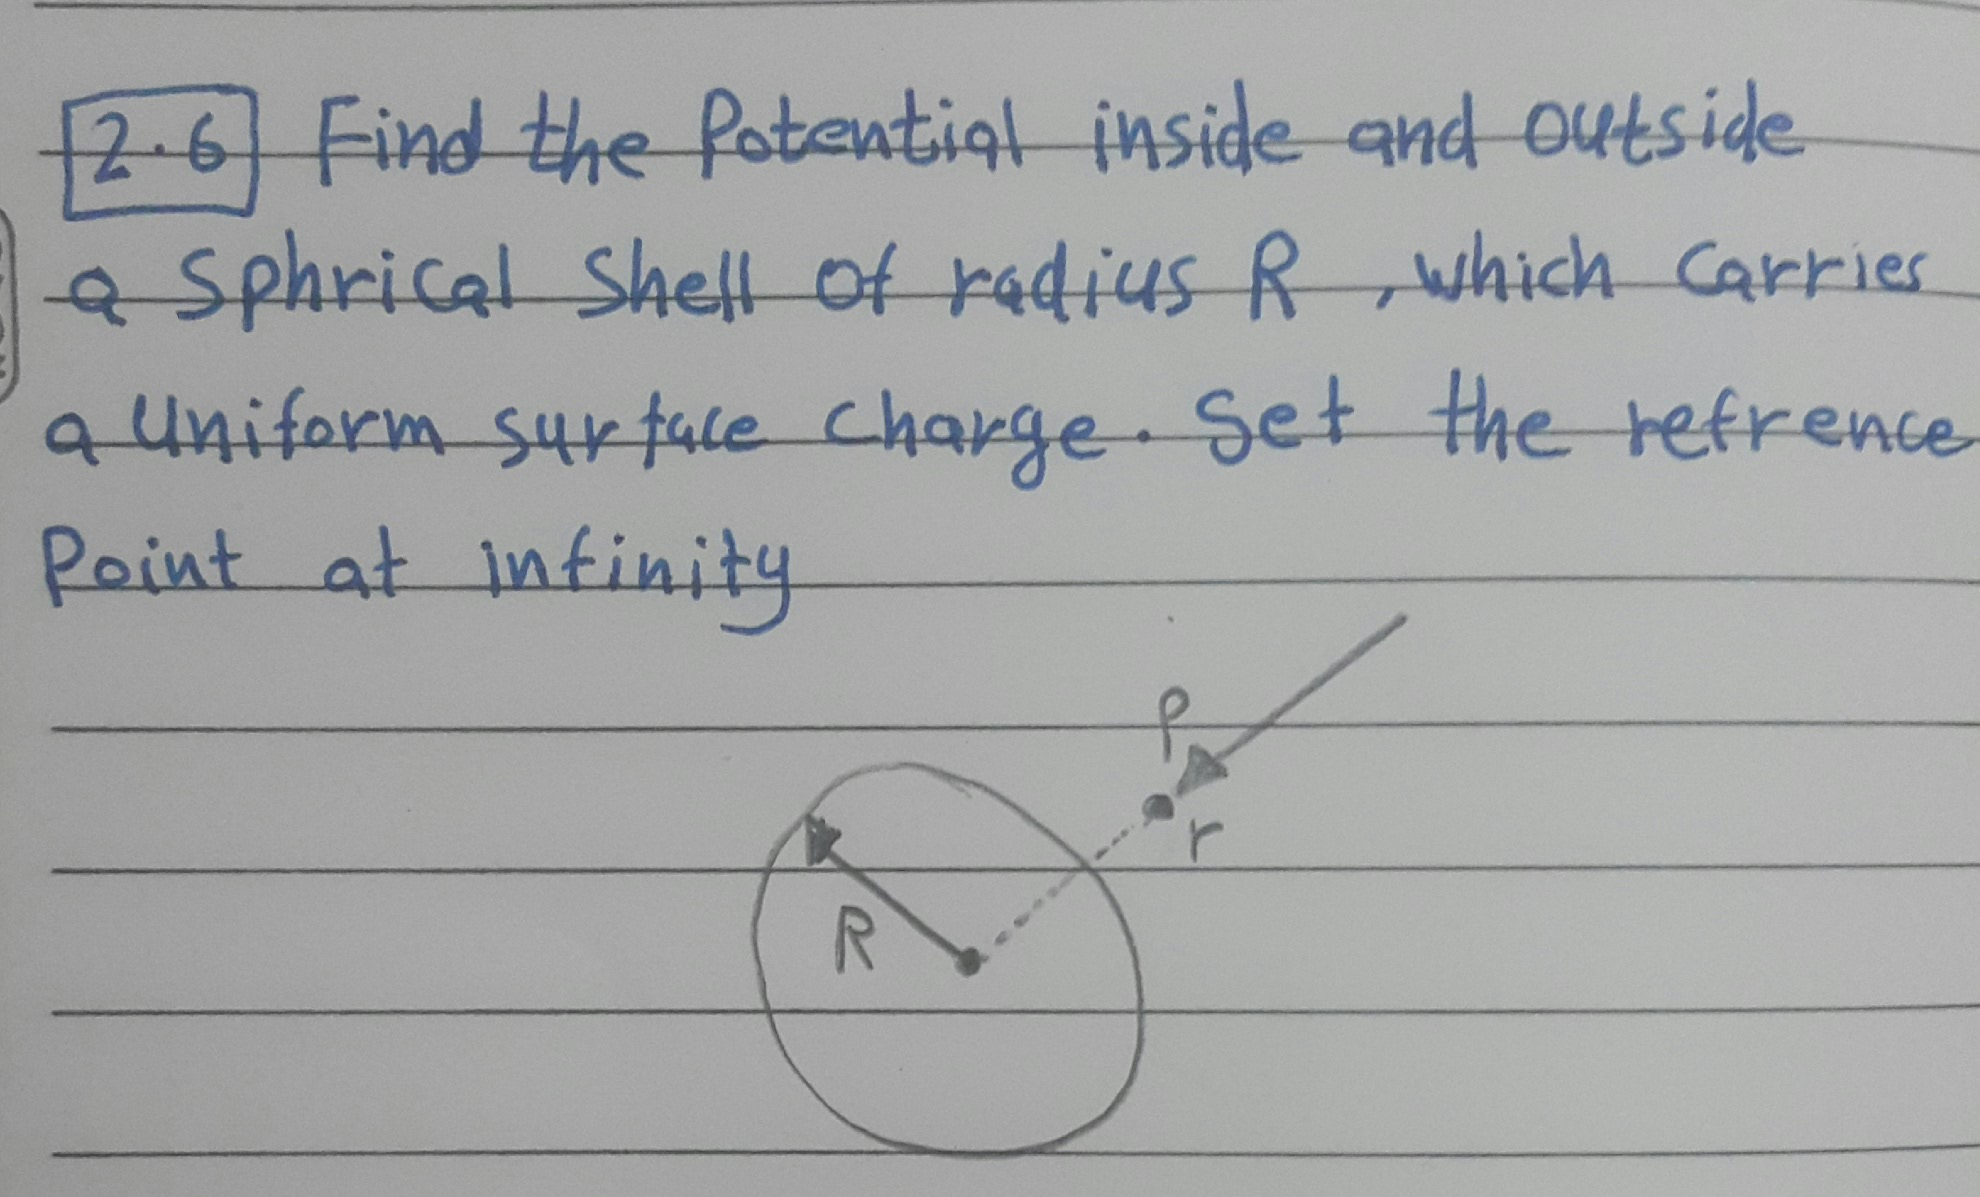 2.6 Find the Potential inside and outside
a Sphrical Shell of radius R , which Carries
a Uniform surface Charge. Set the refrence
Point at infinity
P
r
R